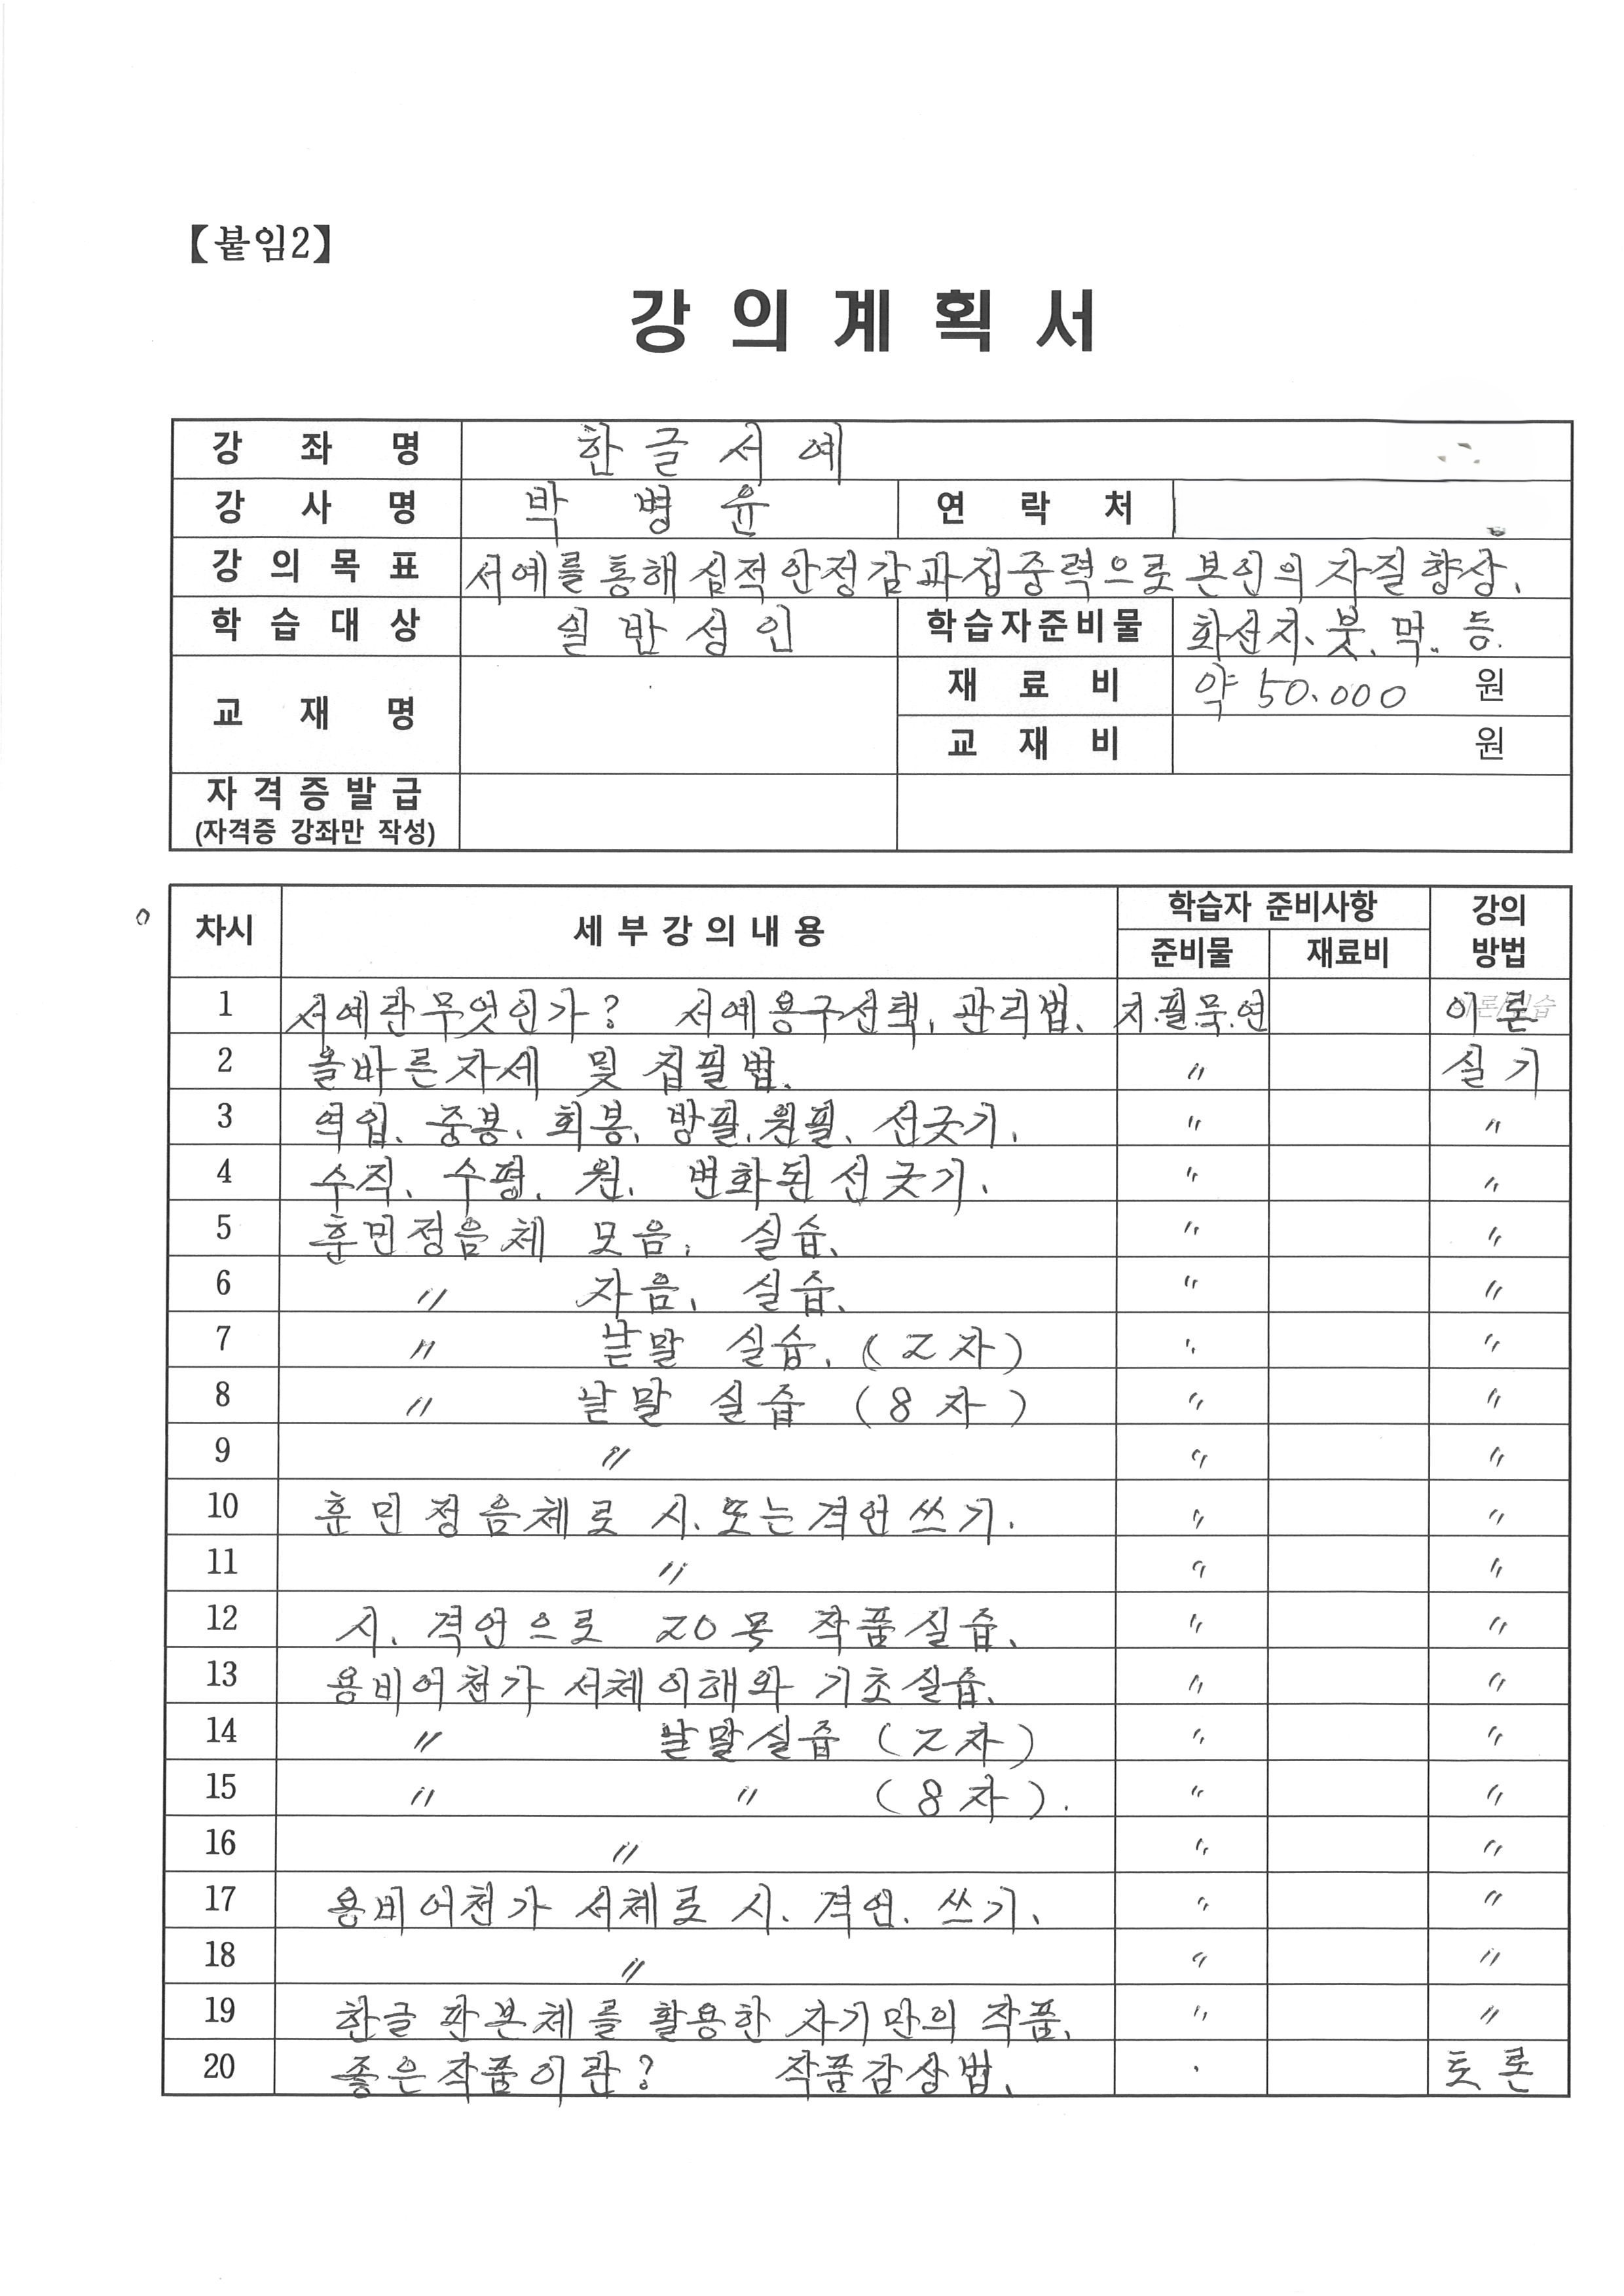 【붙임2】
강 의 계 획 서
강 좌 명 한글서예
강 사 명 박 병 윤 연 락 처
강 의 목 표 서예를 통해 심적안정감과 집중력으로 본인의 자질향상.
학 습 대 상 일반성인 학습자준비물 화선지. 붓. 먹. 등.
교 재 명 재 료 비 약 50.000 원
교 재 비 원
자 격 증 발 급
(자격증 강좌만 작성)
차시 세 부 강 의 내 용 학습자 준비사항 강의
준비물 재료비 방법
1 서예란 무엇인가? 서예용구선택. 관리법. 지.필.묵.연 이론
2 올바른자세 및 집필법. 〃 실기
3 역입. 중봉. 회봉. 방필. 원필. 선긋기. 〃 〃
4 수직. 수평. 원. 변화된 선긋기. 〃 〃
5 훈민정음체 모음. 실습. 〃 〃
6 〃 자음. 실습. 〃 〃
7 〃 낱말 실습. (2자) 〃 〃
8 〃 낱말 실습 (8자) 〃 〃
9 〃 〃 〃
10 훈민정음체로 시. 또는 격언쓰기. 〃 〃
11 〃 〃 〃
12 시. 격언으로 20목 작품실습. 〃 〃
13 용비어천가 서체이해와 기초실습. 〃 〃
14 〃 낱말실습 (2자) 〃 〃
15 〃 〃 (8자). 〃 〃
16 〃 〃 〃
17 용비어천가 서체로 시. 격언. 쓰기. 〃 〃
18 〃 〃 〃
19 한글 판본체를 활용한 자기만의 작품. 〃 〃
20 좋은작품이란? 작품감상법. 토론